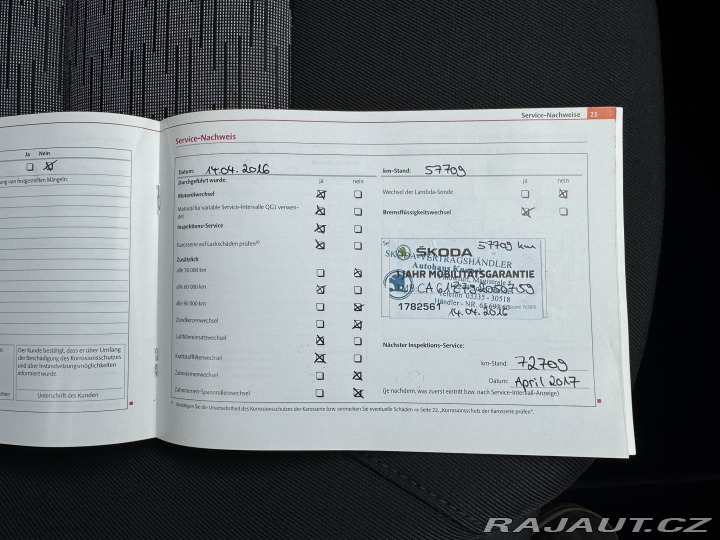 Service-Nachweise 21
Service-Nachweis
Ja Nein
ung von festgestellten Mängeln:
Der Kunde bestätigt, dass er über Umfang
der Beschädigung des Korrosionsschutzes
und über Instandsetzungsmöglichkeiten
informiert wurde.
Unterschrift des Kunden
Datum: 14.04.2016
Durchgeführt wurde: ja nein
Motorölwechsel
Motoröl für variable Service-Intervalle QG1 verwen-
det
Inspektions-Service
Karosserie auf Lackschäden prüfen
Zusätzlich
alle 30 000 km
alle 60 000 km
alle 90 000 km
Zündkerzenwechsel
Luftfiltereinsatzwechsel
Kraftstofffilterwechsel
Zahnriemenwechsel
Zahnriemen-Spannrollenwechsel
km-Stand: 57709
ja nein
Wechsel der Lambda-Sonde
Bremsflüssigkeitswechsel
ŠKODA 57709 km
VERTRAGSHÄNDLER
Autohaus
1 JAHR MOBILITÄTSGARANTIE
Telefon 03335 - 30518
Händler - NR.
1782561 14.04.2016
Nächster Inspektions-Service:
km-Stand: 72709
Datum: April 2017
(je nachdem, was zuerst eintritt bzw. nach Service-Intervall-Anzeige)
Bestätigen Sie die Unversehrtheit des Korrosionsschutzes der Karosserie bzw. vermerken Sie eventuelle Schäden ⇒ Seite 22, „Korrosionsschutz der Karosserie prüfen“.
RAJAUT.CZ